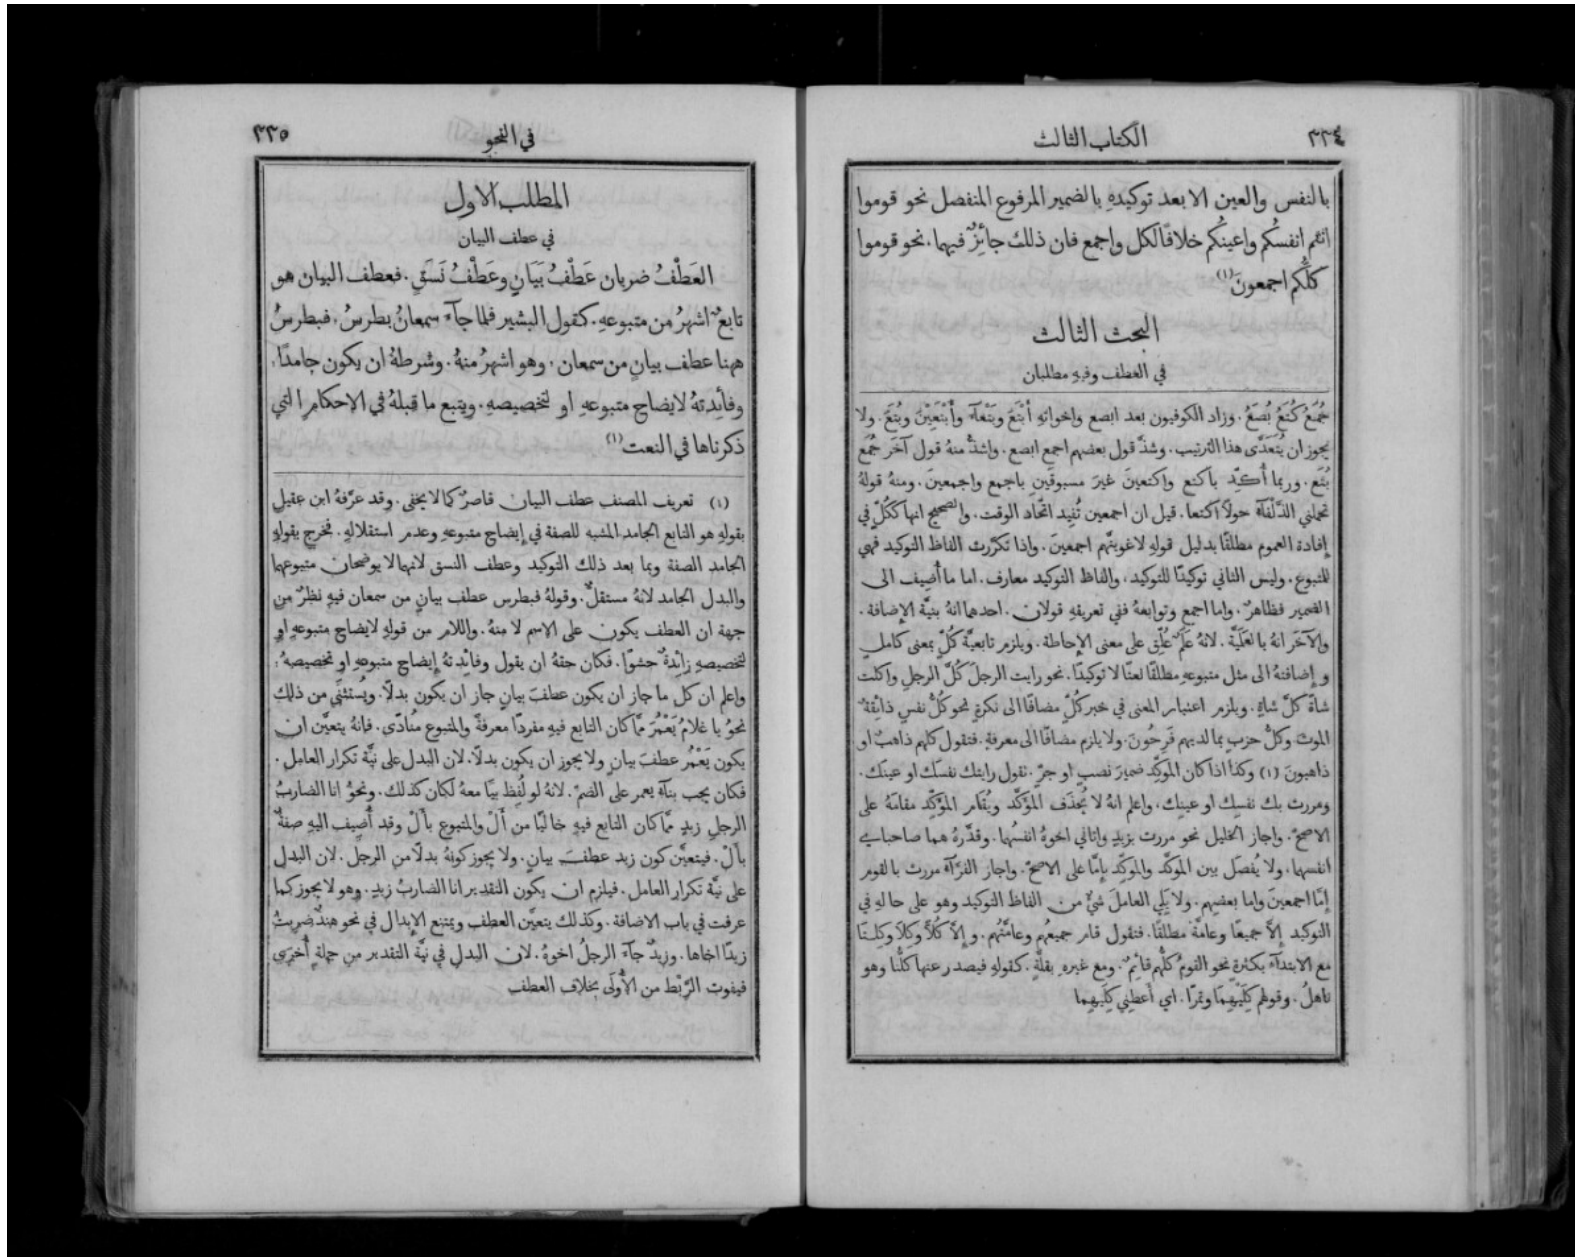 ٣٣٤
الكتاب الثالث
بالنفس والعين الا بعد توكيدهِ بالضمير المرفوع المنفصل نحو قوموا
انتم انفسُكُم واعينُكُم خلافًا لكل واجمع فان ذلك جائِزٌ فيهما. نحو قوموا
كلُّكُم اجمعونَ(١)
البحث الثالث
في العطف وفيهِ مطلبان
جُمَعُ كُتَعُ بُصَعُ. وزاد الكوفيون بعد ابصع واخواتهِ أَبْتَعَ وبَتْعَآءَ وأَبْتَعَيْنَ وبُتَعَ. ولا
يجوز ان يُتَعَدَّى هذا الترتيب. وشذَّ قول بعضهم اجمع ابصع. واشذُّ منهُ قول آخَر جُمَع
بُتَع. وربما أُكّد باكتع واكتعينَ غيرَ مسبوقَينِ باجمع واجمعينَ. ومنهُ قولهُ
تحملني الذَّلْفَآءَ حولًا اكتعا. قيل ان اجمعين تُفِيد اتّحاد الوقت. والصحيح انها ككُلّ في
إفادة العموم مطلقًا بدليل قولهِ لاغوينَّهم اجمعينَ. وإذا تكرَّرت الفاظ التوكيد فهي
للمتبوع. وليس الثاني توكيدًا للتوكيد. والفاظ التوكيد معارف. اما ما أُضِيف الى
الضمير فظاهرٌ. واما اجمع وتوابعهُ ففي تعريفهِ قولان. احدهما انهُ بنيَّة الإضافة.
والآخَر انهُ بالعَلَمِيَّة. لانهُ عَلَمٌ عُلِّق على معنى الإحاطة. ويلزم تابعيَّة كُلّ بمعنى كاملٍ
وإضافتهُ الى مثل متبوعهِ مطلقًا نعتًا لا توكيدًا. نحو رايت الرجلَ كُلَّ الرجلِ واكلت
شاةً كلَّ شاةٍ. ويلزم اعتبار المعنى في خبر كُلّ مضافًا الى نكرةٍ نحو كُلُّ نفسٍ ذائِقةُ
الموت وكلُّ حزبٍ بما لديهم فَرِحُونَ. ولا يلزم مضافًا الى معرفةٍ. فتقول كلهم ذاهبٌ او
ذاهبونَ (١) وكذا اذا كان المؤكَّد ضميرَ نصبٍ او جرٍّ. تقول رايتك نفسَك او عينَك.
ومررت بك نفسِك او عينِك. واعلم انهُ لا يُحذَف المؤكَّد ويُقَام المؤكِّد مقامَهُ على
الاصحّ. واجاز الخليل نحو مررت بزيدٍ واتاني اخوهُ انفسُهما. وقدَّرهُ هما صاحباي
انفسهما. ولا يُفصَل بين المؤكَّد والمؤكِّد بإمَّا على الاصحّ. واجاز الفرَّآءُ مررت بالقوم
إمَّا اجمعينَ واما بعضِهم. ولا يَلِي العاملَ شيٌ من الفاظ التوكيد وهو على حالهِ في
التوكيد إلَّا جميعًا وعامةً مطلقًا. فتقول قام جميعُهم وعامَّتُهم. وإلَّا كُلًّا وكِلَا وكِلتَا
مع الابتدآءِ بكثرةٍ نحو القومُ كلُّهم قائِمٌ. ومع غيرهِ بقلَّةٍ. كقولهِ فيصدر عنها كلُّنا وهو
ناهلُ. وقولهم كِلَيْهِمَا وتمرًا. اي أَعطِنِي كِلَيهِما
٣٣٥
في النحو
المطلب الاول
في عطف البيان
العَطْفُ ضربان عَطْفُ بَيَانٍ وعَطْفُ نَسَقٍ. فعطف البيان هو
تابعٌ اشهرُ من متبوعهِ. كقول البشير فلما جآءَ سمعانُ بطرسُ. فبطرسُ
ههنا عطف بيانٍ من سمعان. وهو اشهرُ منهُ. وشرطهُ ان يكون جامدًا.
وفائِدتهُ لايضاح متبوعهِ او لتخصيصهِ. ويتبع ما قبلهُ في الاحكام التي
ذكرناها في النعت(١)
(١) تعريف المصنف عطف البيان قاصرٌ كما لا يخفى. وقد عرَّفهُ ابن عقيلٍ
بقولهِ هو التابع الجامد المشبه للصفة في إيضاح متبوعهِ وعدم استقلالهِ. فخرج بقولهِ
الجامد الصفة وبما بعد ذلك التوكيد وعطف النسق لانهما لا يوضحان متبوعهما
والبدل الجامد لانهُ مستقلٌّ. وقولهُ فبطرس عطف بيانٍ من سمعان فيهِ نظرٌ من
جهة ان العطف يكون على الاسم لا منهُ. واللام من قولهِ لايضاح متبوعهِ او
لتخصيصهِ زائِدةٌ حشوًا. فكان حقهُ ان يقول وفائدتهُ إيضاح متبوعهِ او تخصيصهُ.
واعلم ان كل ما جاز ان يكون عطفَ بيانٍ جاز ان يكون بدلًا. ويُستثنَى من ذلك
نحوُ يا غلامُ يَعْمُرَ ممَّا كان التابع فيهِ مفردًا معرفةً والمتبوع مُنادًى. فانهُ يتعيَّن ان
يكون يَعْمُر عطفَ بيانٍ ولا يجوز ان يكون بدلًا. لان البدل على نيَّة تكرار العامل.
فكان يجب بنآءُ يعمر على الضمّ. لانهُ لو لُفِظ بيَا معهُ لكان كذلك. ونحوُ انا الضاربُ
الرجلِ زيدٍ ممَّا كان التابع فيهِ خاليًا من أَلْ والمتبوع بأَلْ وقد أُضِيف اليهِ صفةٌ
بأَلْ. فيتعيَّن كون زيد عطفَ بيانٍ. ولا يجوز كونهُ بدلًا من الرجل. لان البدل
على نيَّة تكرار العامل. فيلزم ان يكون التقدير انا الضاربُ زيدٍ. وهو لا يجوز كما
عرفت في باب الاضافة. وكذلك يتعيَّن العطف ويمتنع الإبدال في نحو هندٌ ضربتُ
زيدًا اخاها. وزيدٌ جآءَ الرجلُ اخوهُ. لان البدل في نيَّة التقدير من جملةٍ أُخرَى
فيفوت الرَّبْط من الأُولَى بخلاف العطف